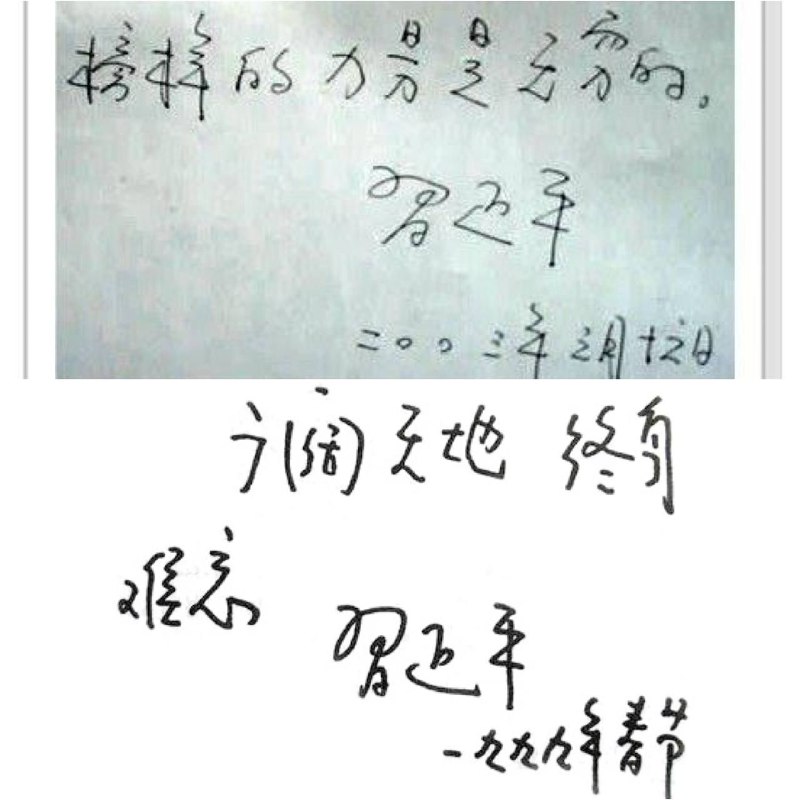 榜样的力量是无穷的。
習近平
二〇〇三年
广阔天地 终身
难忘
習近平
一九九九年春节